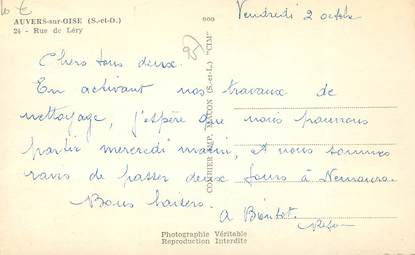 10 €
AUVERS-sur-OISE (S.-et-O.)
24 - Rue de Léry
Vendredi 2 octobre
Chers tous deux.
En activant nos travaux de
nettoyage, j'espère que nous pourrons
partir mercredi matin, et nous sommes
ravis de passer deux jours à Nemours.
Bons baisers.
A Bientôt.
COMBIER IMP. MACON (S.-et-L.) "CIM"
Photographie Véritable
Reproduction Interdite